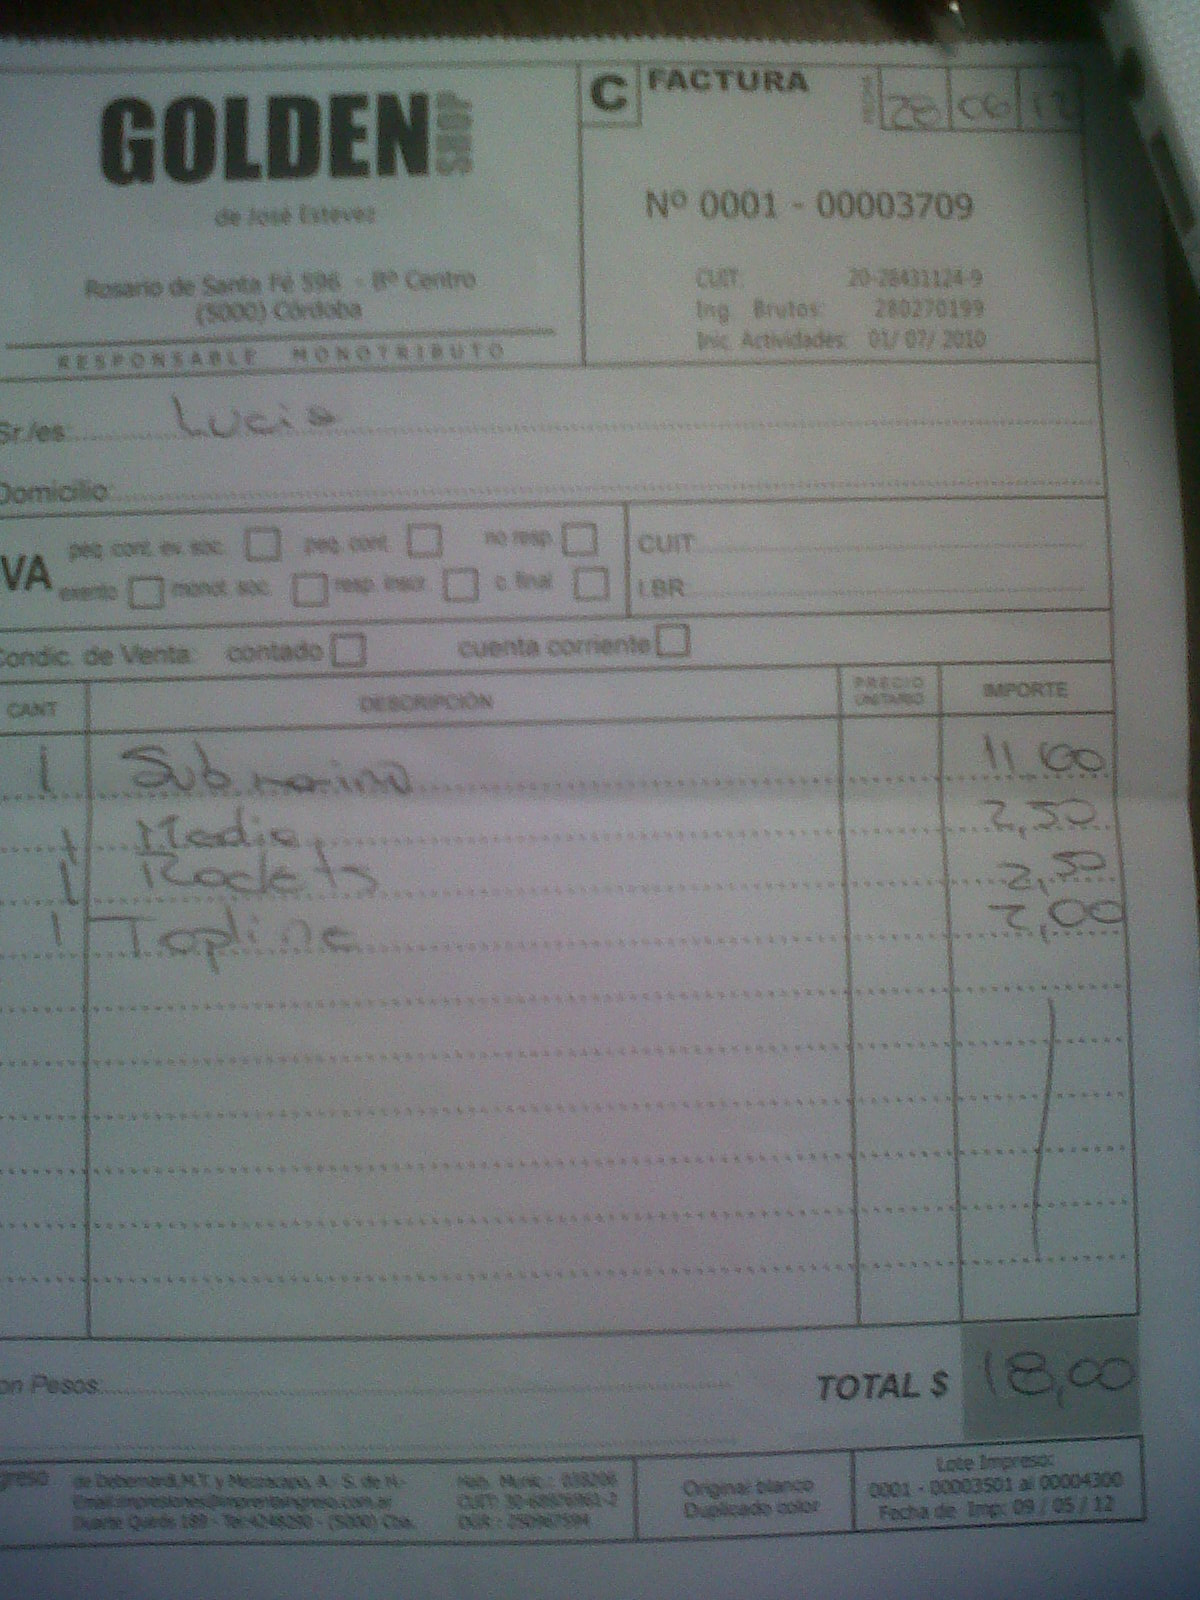 GOLDEN SHOP
de José Estevez
Rosario de Santa Fé 596 - Bº Centro
(5000) Córdoba
RESPONSABLE MONOTRIBUTO
C FACTURA
FECHA 28 06 12
Nº 0001 - 00003709
CUIT: 20-28431124-9
Ing. Brutos: 280270199
Inic. Actividades: 01/ 07/ 2010
Sr./es: Lucia
Domicilio:
IVA peq. cont. ev. soc. peq. cont. no resp.
exento monot. soc. resp. inscr. c. final
CUIT
I.BR.
Condic. de Venta: contado cuenta corriente
CANT DESCRIPCIÓN PRECIO UNITARIO IMPORTE
1 Submarino 11,00
1 Media 2,50
1 Rocklets 2,50
1 Topline 2,00
on Pesos:
TOTAL $ 18,00
greso de Debernardi, M.T. y Mezzacapa, A. - S. de H.-
Email:impresiones@imprentaingreso.com.ar
Duarte Quirós 189 - Tel:4248290 - (5000) Cba.
Hab. Munic.:
CUIT:
DGR: 250967594
Original: blanco
Duplicado: color
Lote Impreso:
0001 - 00003501 al 00004300
Fecha de Imp: 09 / 05 / 12